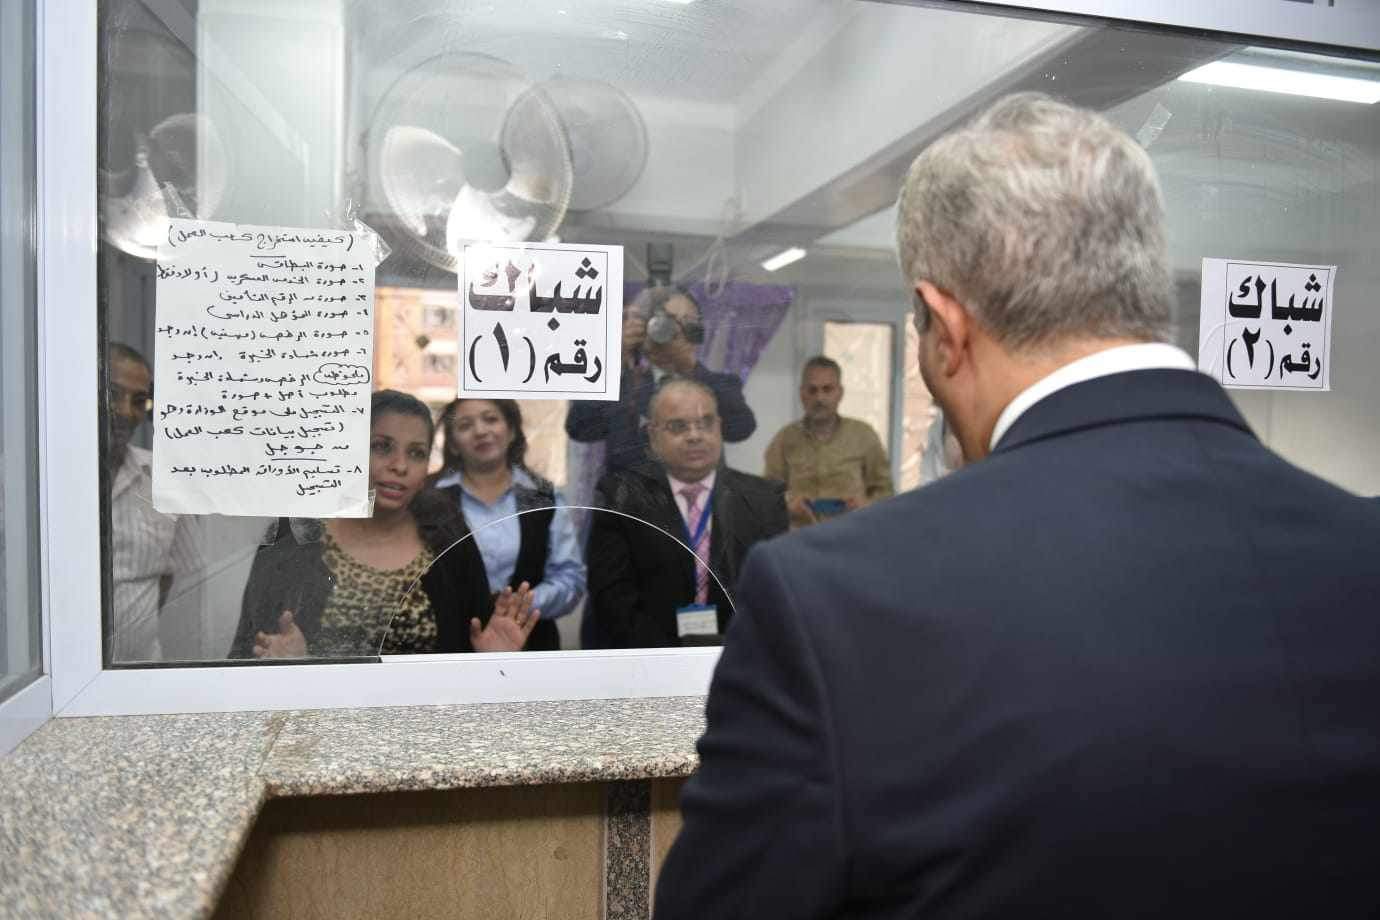 (كيفية استخراج كعب العمل)
١- صورة البطاقة
٢- صورة الخدمة العسكرية (أولاد فقط
٣- صورة من الرقم التأميني
٤- صورة المؤهل الدراسي
٥- صورة الرخصة (مهنية) إن وجد
٦- صورة شهادة الخبرة إن وجد
ملحوظة الرخصة وشهادة الخبرة
مطلوب أصل + صورة
٧- التسجيل على موقع الوزارة وهو
(تسجيل بيانات كعب العمل)
من جوجل
٨- تسليم الأوراق المطلوب بعد
التسجيل
شباك
رقم (١)
شباك
رقم (٢)